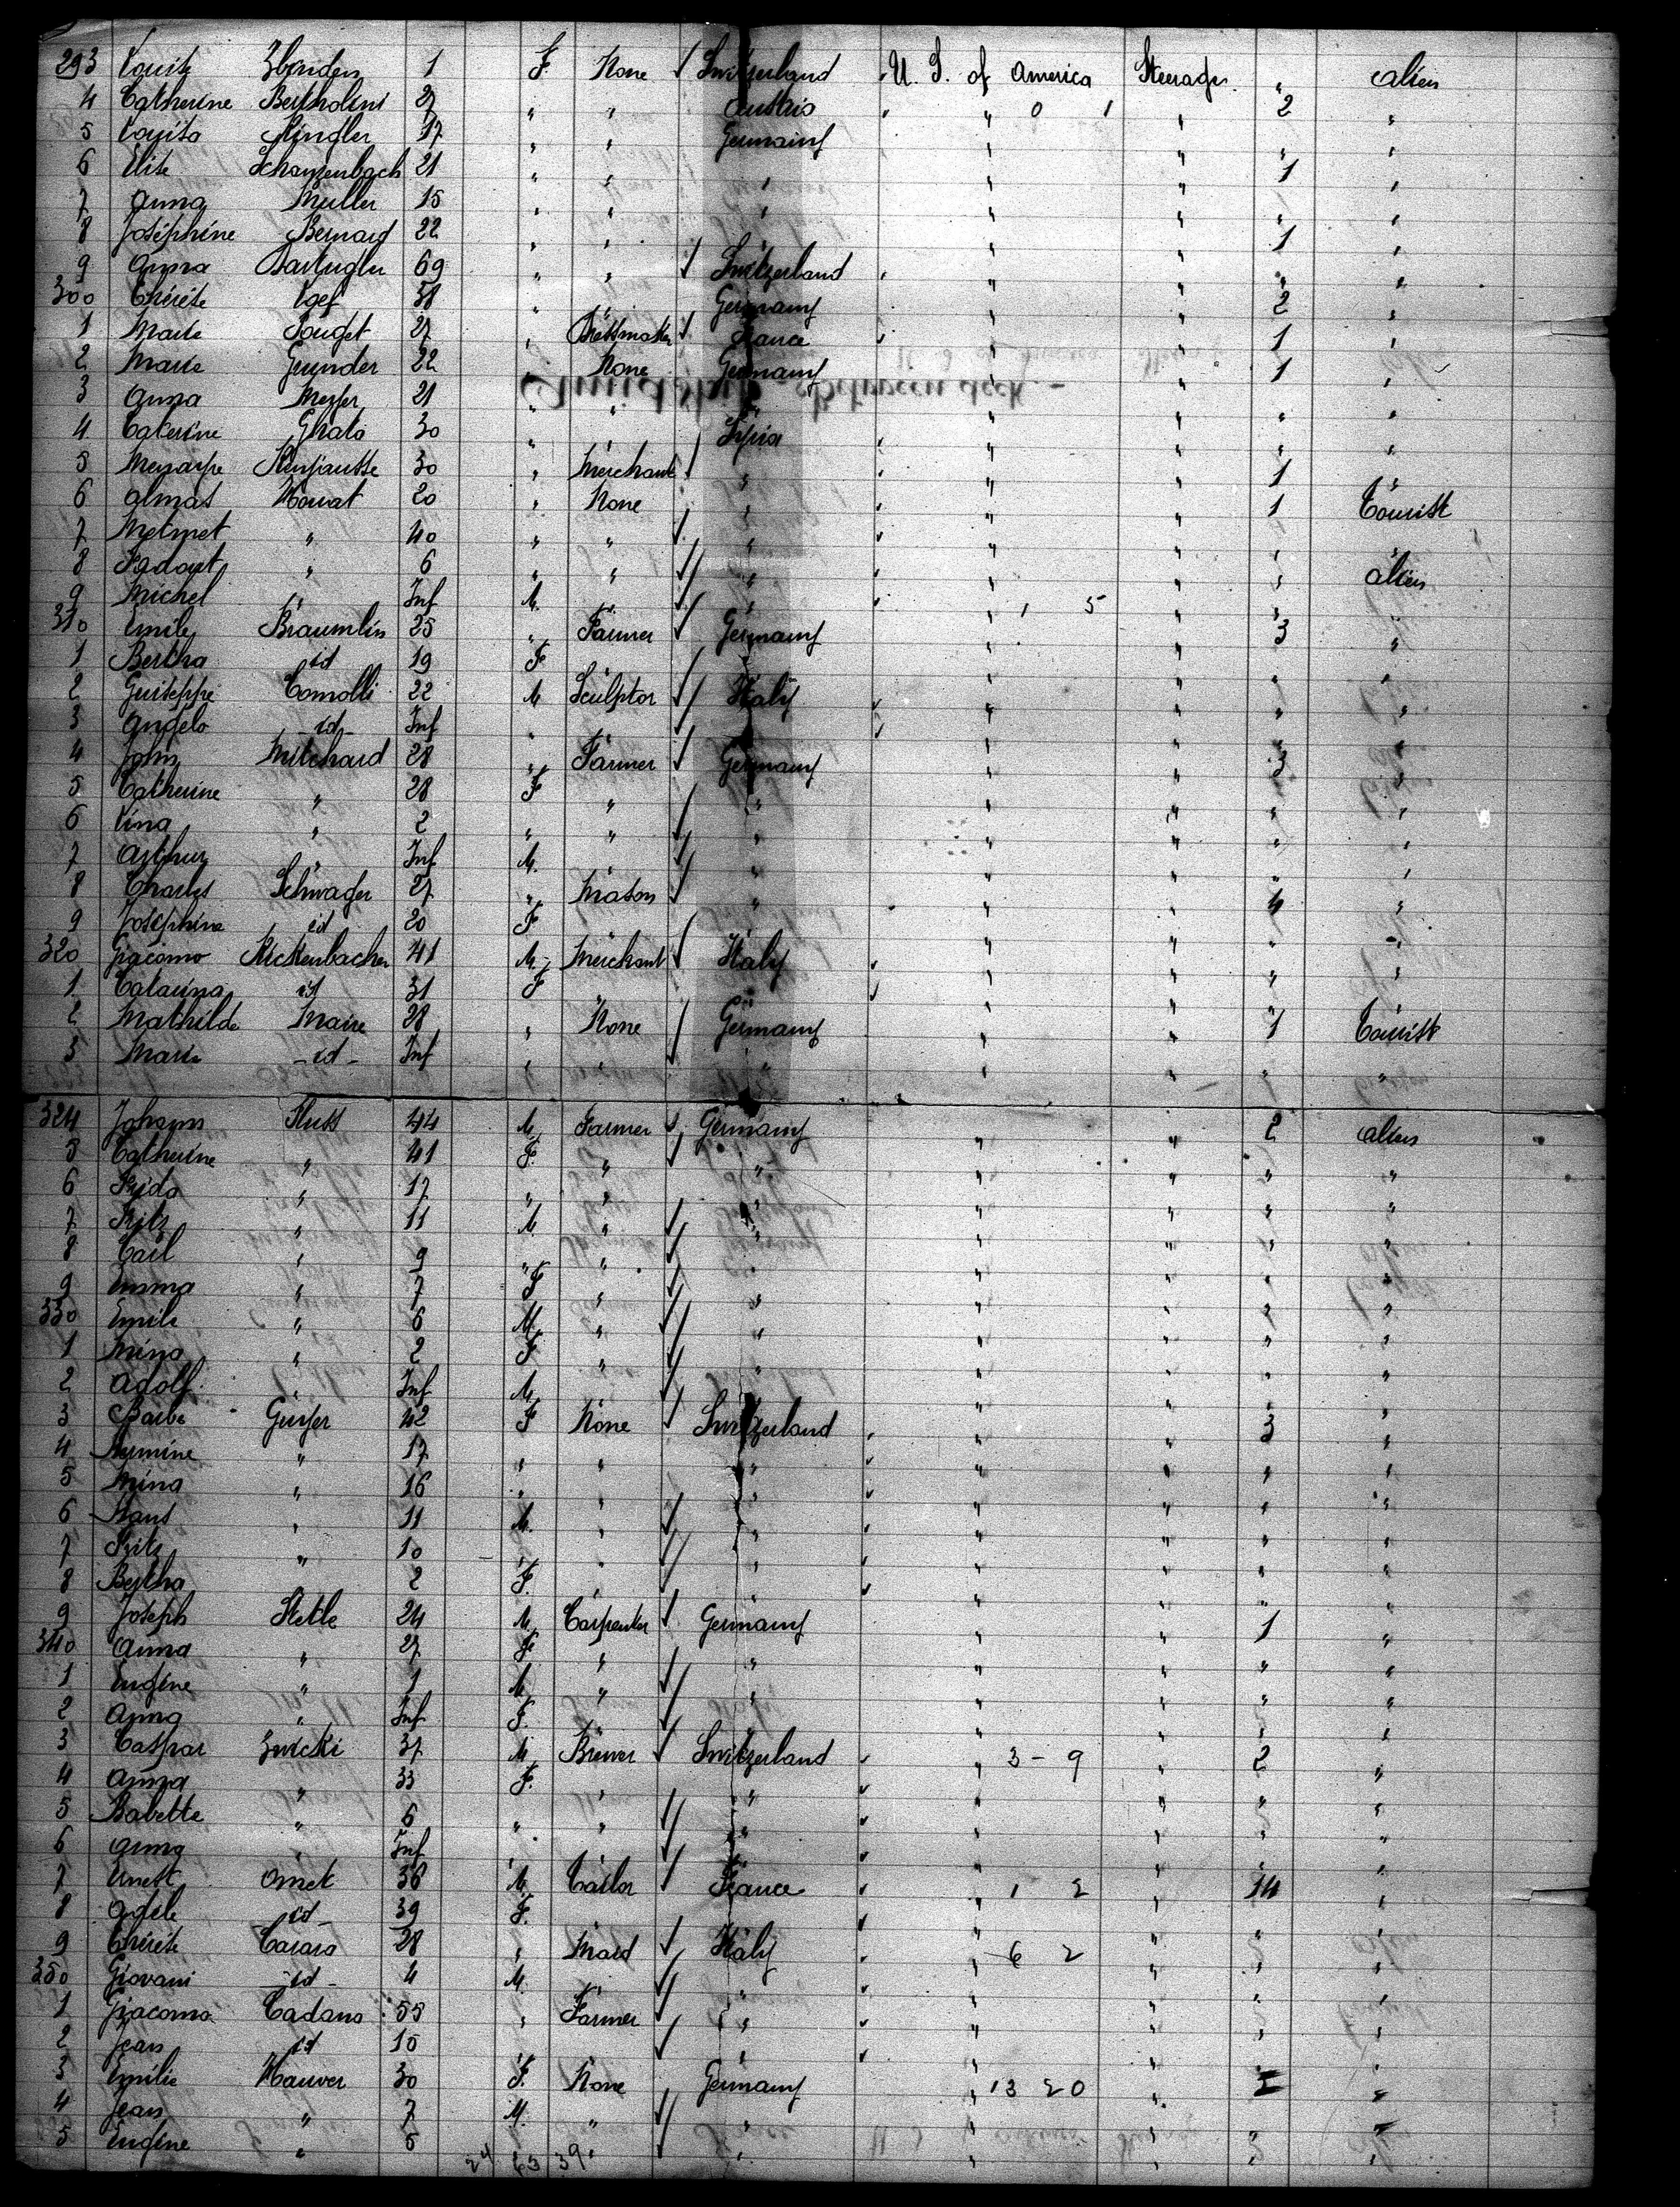 293 Louise Zbinden 1 F. None Switzerland U. S. of America Steerage " alien
4 Catherine Bertholini 27 " " Austria " 0 1 " 2 "
5 Louisa Kindler 17 " " Germany " " " "
6 Elise Schanzenbach 21 " " " " " 1 "
7 Anna Muller 15 " " " " " " "
8 Joséphine Bernard 22 " " " " " 1 "
9 Anna 69 " " Switzerland " " " "
300 Thérèse Loef 38 " " Germany " " 2 "
1 Marie Pouget 27 " Dressmaker France " " 1 "
2 Marie Gunder 22 " None Germany " " 1 "
3 Anna Meyer 21 " " " " " " "
4 Caterine Ghato 30 " " Syria " " " "
5 30 " Merchant " " " 1 "
6 Almas Houat 20 " None " " " 1 Tourist
7 Metmet " 40 " " " " " " "
8 Sadout " 6 " " " " " " alien
9 Michel " Inf M. " " " 1 5 " " "
310 Emile Braumlin 25 " Farmer Germany " " 3 "
1 Bertha id 19 F " " " " " "
2 Guiseppi Comolli 22 M Sculptor Italy " " " "
3 Angelo - id - Inf " " " " " " "
4 John Mitchard 28 " Farmer Germany " " 3 "
5 Catherine " 28 F " " " " " "
6 Lina " 2 " " " " " " "
7 Arthur " Inf M. " " " " " "
8 Charles Schwager 27 " Mason " " " 4 "
9 Joséphine id 20 F " " " " " "
320 Giacomo Rickenbacher 41 M. Merchant Italy " " " "
1 Catarina id 31 F " " " " " "
2 Mathilde Maire 28 " None Germany " " 1 Tourist
3 Marie - id - Inf " " " " " " "
324 Johann Huss 44 M. Farmer Germany " " 2 alien
5 Catherine " 41 F. " " " " " "
6 Frida " 17 " " " " " " "
7 Fritz " 11 M. " " " " " "
8 Carl " 9 " " " " " " "
9 Emma " 7 F " " " " " "
330 Emile " 6 M. " " " " " "
1 Mina " 2 F " " " " " "
2 Adolf " Inf M. " " " " " "
3 Barbe Geiser 42 F None Switzerland " " 3 "
4 Hermine " 17 " " " " " " "
5 Mina " 16 " " " " " " "
6 Hans " 11 M. " " " " " "
7 Fritz " 10 " " " " " " "
8 Bertha " 2 F. " " " " " "
9 Joseph Stehle 24 M. Carpenter Germany " " 1 "
340 Anna " 27 F " " " " " "
1 Eugène " 1 M " " " " " "
2 Anna " Inf F. " " " " " "
3 Caspar Zwicki 37 M. Brewer Switzerland " 3 - 9 " 2 "
4 Anna " 33 F. " " " " " "
5 Babette " 6 " " " " " " "
6 Anna " Inf " " " " " " "
7 Ernest Omet 36 M. Tailor France " 1 2 " 14 "
8 Adèle - id - 39 F. " " " " " "
9 Thérèse Carara 28 " Maid Italy " 6 2 " " "
350 Giovani - id - 4 M. " " " " " "
1 Giacomo Cadano 55 " Farmer " " " " "
2 Jean id 15 " " " " " " "
3 Emilie Hauver 30 F. None Germany " 13 20 " "
4 Jean " 7 M. " " " " " "
5 Eugène " 5 " " " " " " "
24 63 39